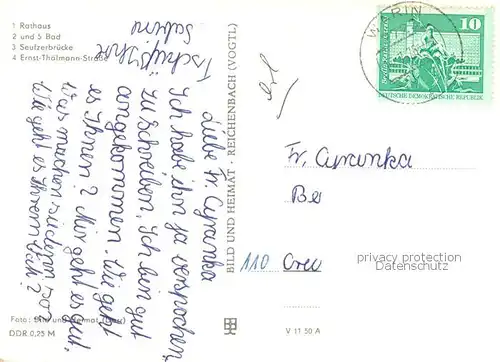 1 Rathaus
2 und 5 Bad
3 Seufzerbrücke
4 Ernst-Thälmann-Straße
Liebe Fr. Cyranka
Ich habe ihn ja versprochen,
zu schreiben. Ich bin gut
angekommen. Wie geht
es Ihnen? Mir geht es gut.
Was machen sie denn so?
Wie geht es Ihrem Dich?
Tschüß Ihre
Sabine
BILD UND HEIMAT · REICHENBACH (VOGTL)
Foto: Bild und Heimat
DDR 0,25 M
V 11 50 A
10
DEUTSCHE DEMOKRATISCHE REPUBLIK
Fr. Cyranka
Be
110
privacy protection
Datenschutz